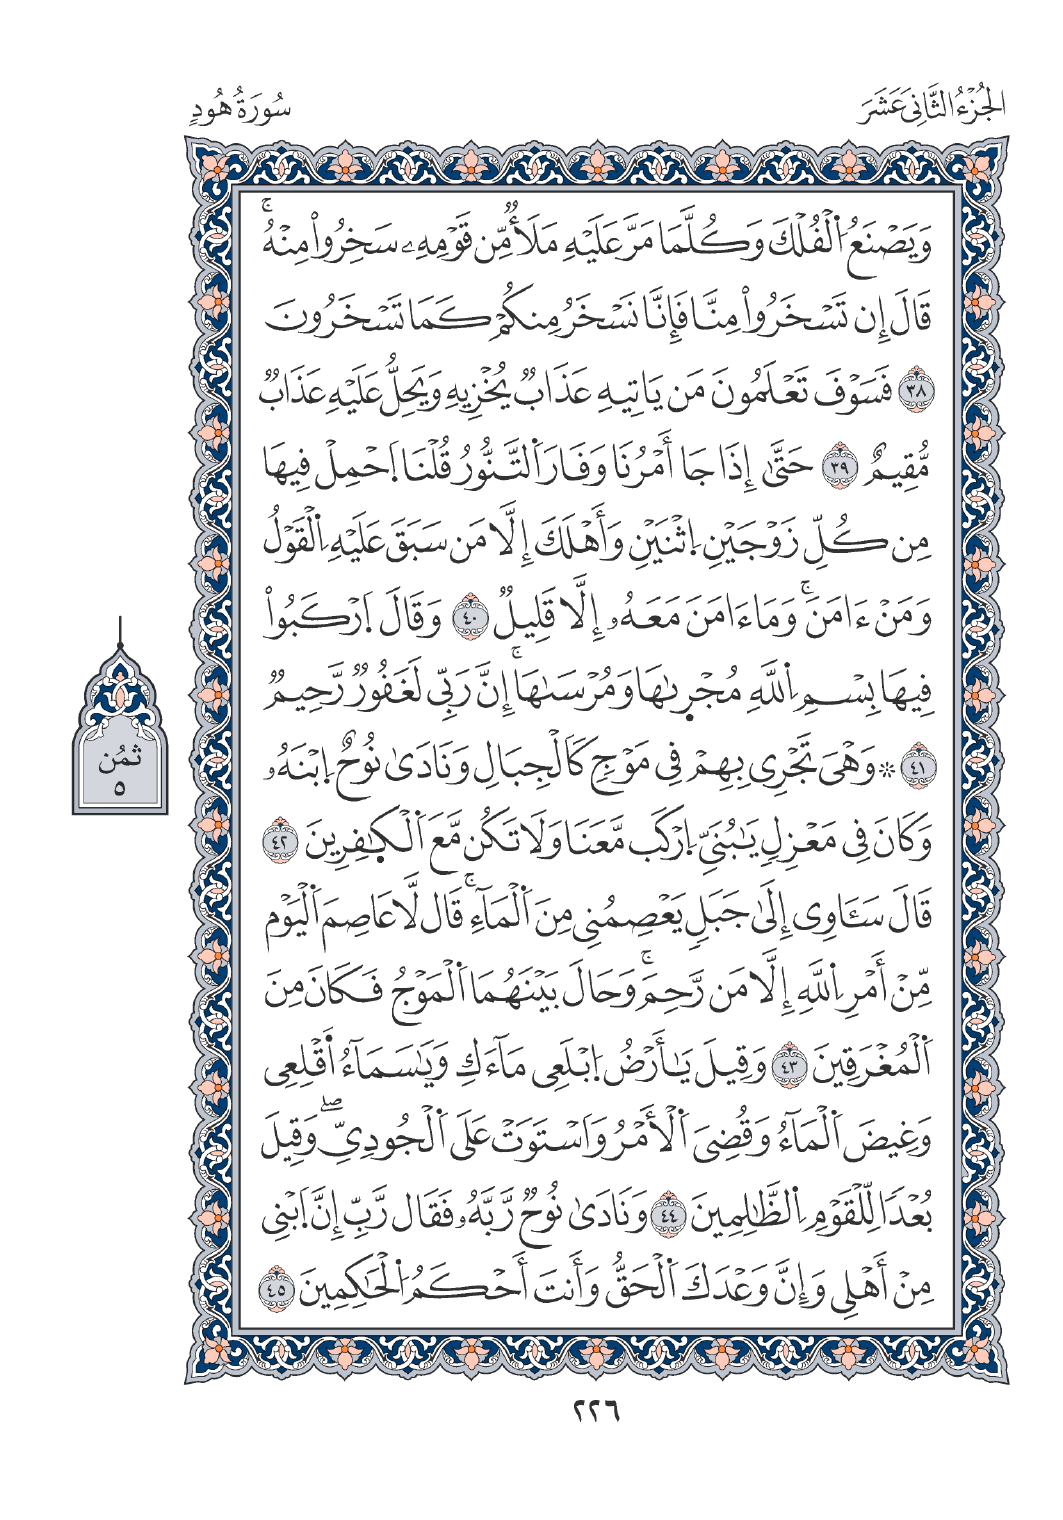 الجُزْءُ الثَّانِيَ عَشَرَ
سُورَةُ هُودٍ
وَيَصْنَعُ اُ۬لْفُلْكَ وَكُلَّمَا مَرَّ عَلَيْهِ مَلَأٞ مِّن قَوْمِهِۦ سَخِرُواْ مِنْهُۚ
قَالَ إِن تَسْخَرُواْ مِنَّا فَإِنَّا نَسْخَرُ مِنكُمْ كَمَا تَسْخَرُونَ
٣٨ فَسَوْفَ تَعْلَمُونَ مَن يَاتِيهِ عَذَابٞ يُخْزِيهِ وَيَحِلُّ عَلَيْهِ عَذَابٞ
مُّقِيمٌ ٣٩ حَتَّىٰ إِذَا جَا أَمْرُنَا وَفَارَ اَ۬لتَّنُّورُ قُلْنَا اَ۪حْمِلْ فِيهَا
مِن كُلِّ زَوْجَيْنِ اِ۪ثْنَيْنِ وَأَهْلَكَ إِلَّا مَن سَبَقَ عَلَيْهِ اِ۬لْقَوْلُ
وَمَنْ ءَامَنَۚ وَمَا ءَامَنَ مَعَهُۥ إِلَّا قَلِيلٞ ٤٠ وَقَالَ اَ۪رْكَبُواْ
فِيهَا بِسْمِ اِ۬للَّهِ مُجْر۪ىٰهَا وَمُرْسَىٰهَاۚ إِنَّ رَبِّي لَغَفُورٞ رَّحِيمٞ
٤١ ۞ وَهْيَ تَجْرِي بِهِمْ فِي مَوْجٖ كَالْجِبَالِ وَنَادَىٰ نُوحٌ اِ۪بْنَهُۥ
وَكَانَ فِي مَعْزِلٖ يَٰبُنَيِّ اِ۪رْكَب مَّعَنَا وَلَا تَكُن مَّعَ اَ۬لْكٰ۪فِرِينَ ٤٢
قَالَ سَـَٔاوِي إِلَىٰ جَبَلٖ يَعْصِمُنِي مِنَ اَ۬لْمَآءِۚ قَال لَّا عَاصِمَ اَ۬لْيَوْم
مِّنْ أَمْرِ اِ۬للَّهِ إِلَّا مَن رَّحِمَۚ وَحَالَ بَيْنَهُمَا اَ۬لْمَوْجُ فَكَانَ مِنَ
اَ۬لْمُغْرَقِينَ ٤٣ وَقِيلَ يَٰأَرْضُ اُ۪بْلَعِي مَآءَكِ وَيَٰسَمَآءُ اَ۬قْلِعِي
وَغِيضَ اَ۬لْمَآءُ وَقُضِيَ اَ۬لْأَمْرُ وَاسْتَوَتْ عَلَى اَ۬لْجُودِيِّۖ وَقِيلَ
بُعْدٗا لِّلْقَوْمِ اِ۬لظَّٰلِمِينَ ٤٤ وَنَادَىٰ نُوحٞ رَّبَّهُۥ فَقَال رَّبِّ إِنَّ اَ۪بْنِي
مِنْ أَهْلِي وَإِنَّ وَعْدَكَ اَ۬لْحَقُّ وَأَنتَ أَحْكَمُ اُ۬لْحَٰكِمِينَ ٤٥
ثمُن
٥
٢٢٦